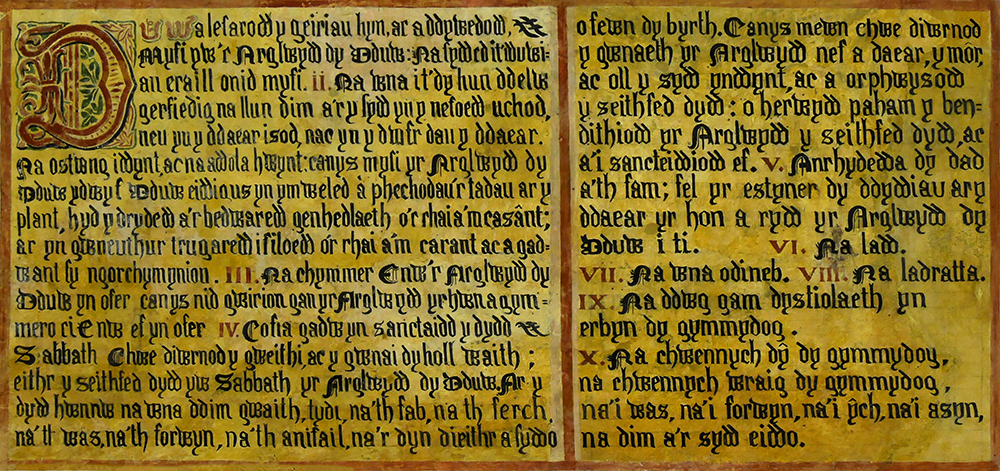 DUW a lefarodd y geiriau hyn, ac a ddywedodd,
Myfi yw'r Arglwydd dy Dduw: Na fydded it' dduwi-
au eraill onid myfi. ii. Na wna it' dy hun ddelw
gerfiedig na llun dim a'r y sydd yn y nefoedd uchod,
neu yn y ddaear isod, nac yn y dwfr dan y ddaear.
Na ostwng iddynt, ac na addola hwynt: canys myfi yr Arglwydd dy
Dduw ydwyf Dduw eiddigus yn ymweled â phechodau'r tadau ar y
plant, hyd y drydedd a'r bedwaredd genhedlaeth o'r rhai a'm casânt;
ac yn gwneuthur trugaredd i filoedd o'r rhai a'm carant ac a gad=
want fy ngorchymynion. III. Na chymmer Enw'r Arglwydd dy
Dduw yn ofer canys nid gwirion gan yr Arglwydd yr hwn a gym=
mero ei Enw ef yn ofer IV. Cofia gadw yn sanctaidd y dydd
Sabbath Chwe diwrnod y gweithi, ac y gwnai dy holl waith;
eithr y seithfed dydd yw Sabbath yr Arglwydd dy Dduw. Ar y
dydd hwnnw na wna ddim gwaith, tydi, na'th fab, na'th ferch,
na'th was, na'th forwyn, na'th anifail, na'r dyn dieithr a fyddo
o fewn dy byrth. Canys mewn chwe diwrnod
y gwnaeth yr Arglwydd nef a daear, y môr,
ac oll y sydd ynddynt, ac a orphwysodd
y seithfed dydd: o herwydd paham y ben-
dithiodd yr Arglwydd y seithfed dydd, ac
a'i sancteiddiodd ef. V. Anrhydedda dy dad
a'th fam; fel yr estyner dy ddyddiau ar y
ddaear yr hon a rydd yr Arglwydd dy
Dduw i ti. VI. Na ladd.
VII. Na wna odineb. VIII. Na ladratta.
IX Na ddwg gam dystiolaeth yn
erbyn dy gymmydog.
X. Na chwennych dŷ dy gymmydog,
na chwennych wraig dy gymmydog,
na'i was, na'i forwyn, na'i ŷch, na'i asyn,
na dim a'r sydd eiddo.